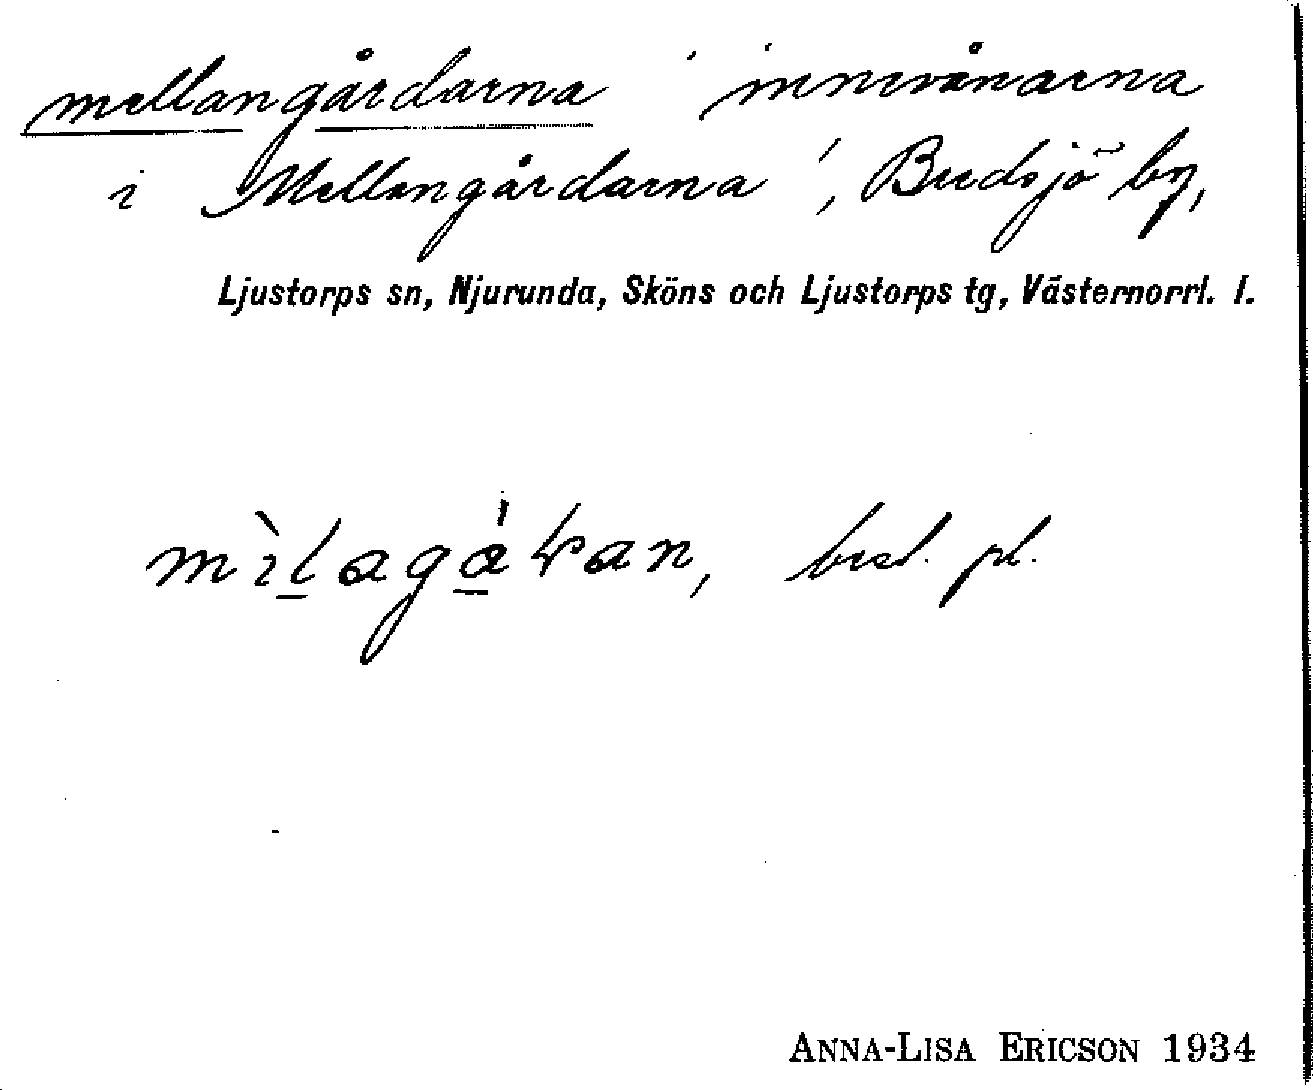 mellangårdarna 'innevånarna
i Mellangårdarna', Bredsjö by,
Ljustorps sn, Njurunda, Sköns och Ljustorps tg, Västernorrl. l.
best. pl.
ANNA-LISA ERICSON 1934